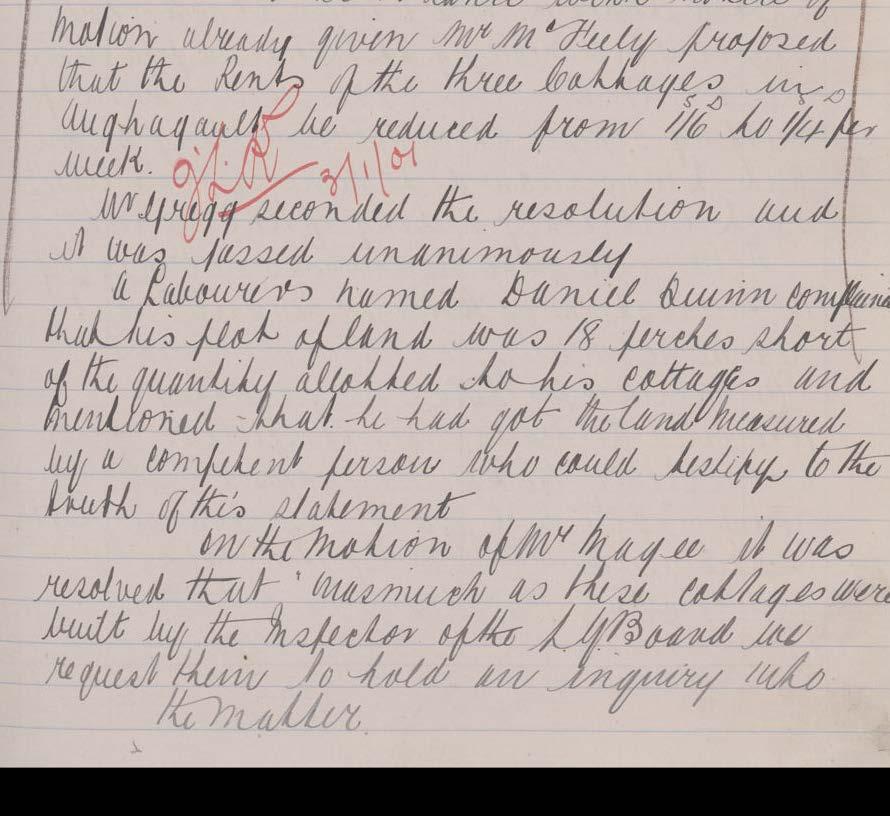 notice of
Motion already given Mr McFeely proposed
that the Rents of the three Cottages in
Aughagault be reduced from 1/6 to 1/4 per
week.
3/1/01
Mr Gregg seconded the resolution and
it was passed unanimously
A Labourers named Daniel Quinn complained
that his plot of land was 18 perches short
of the quantity allotted to his cottages and
mentioned that he had got the land measured
by a competent person who could testify to the
truth of this statement
On the Motion of Mr Magee it was
resolved that "inasmuch as these cottages were
built by the Inspector of the L G Board we
request them to hold an inquiry into
the matter